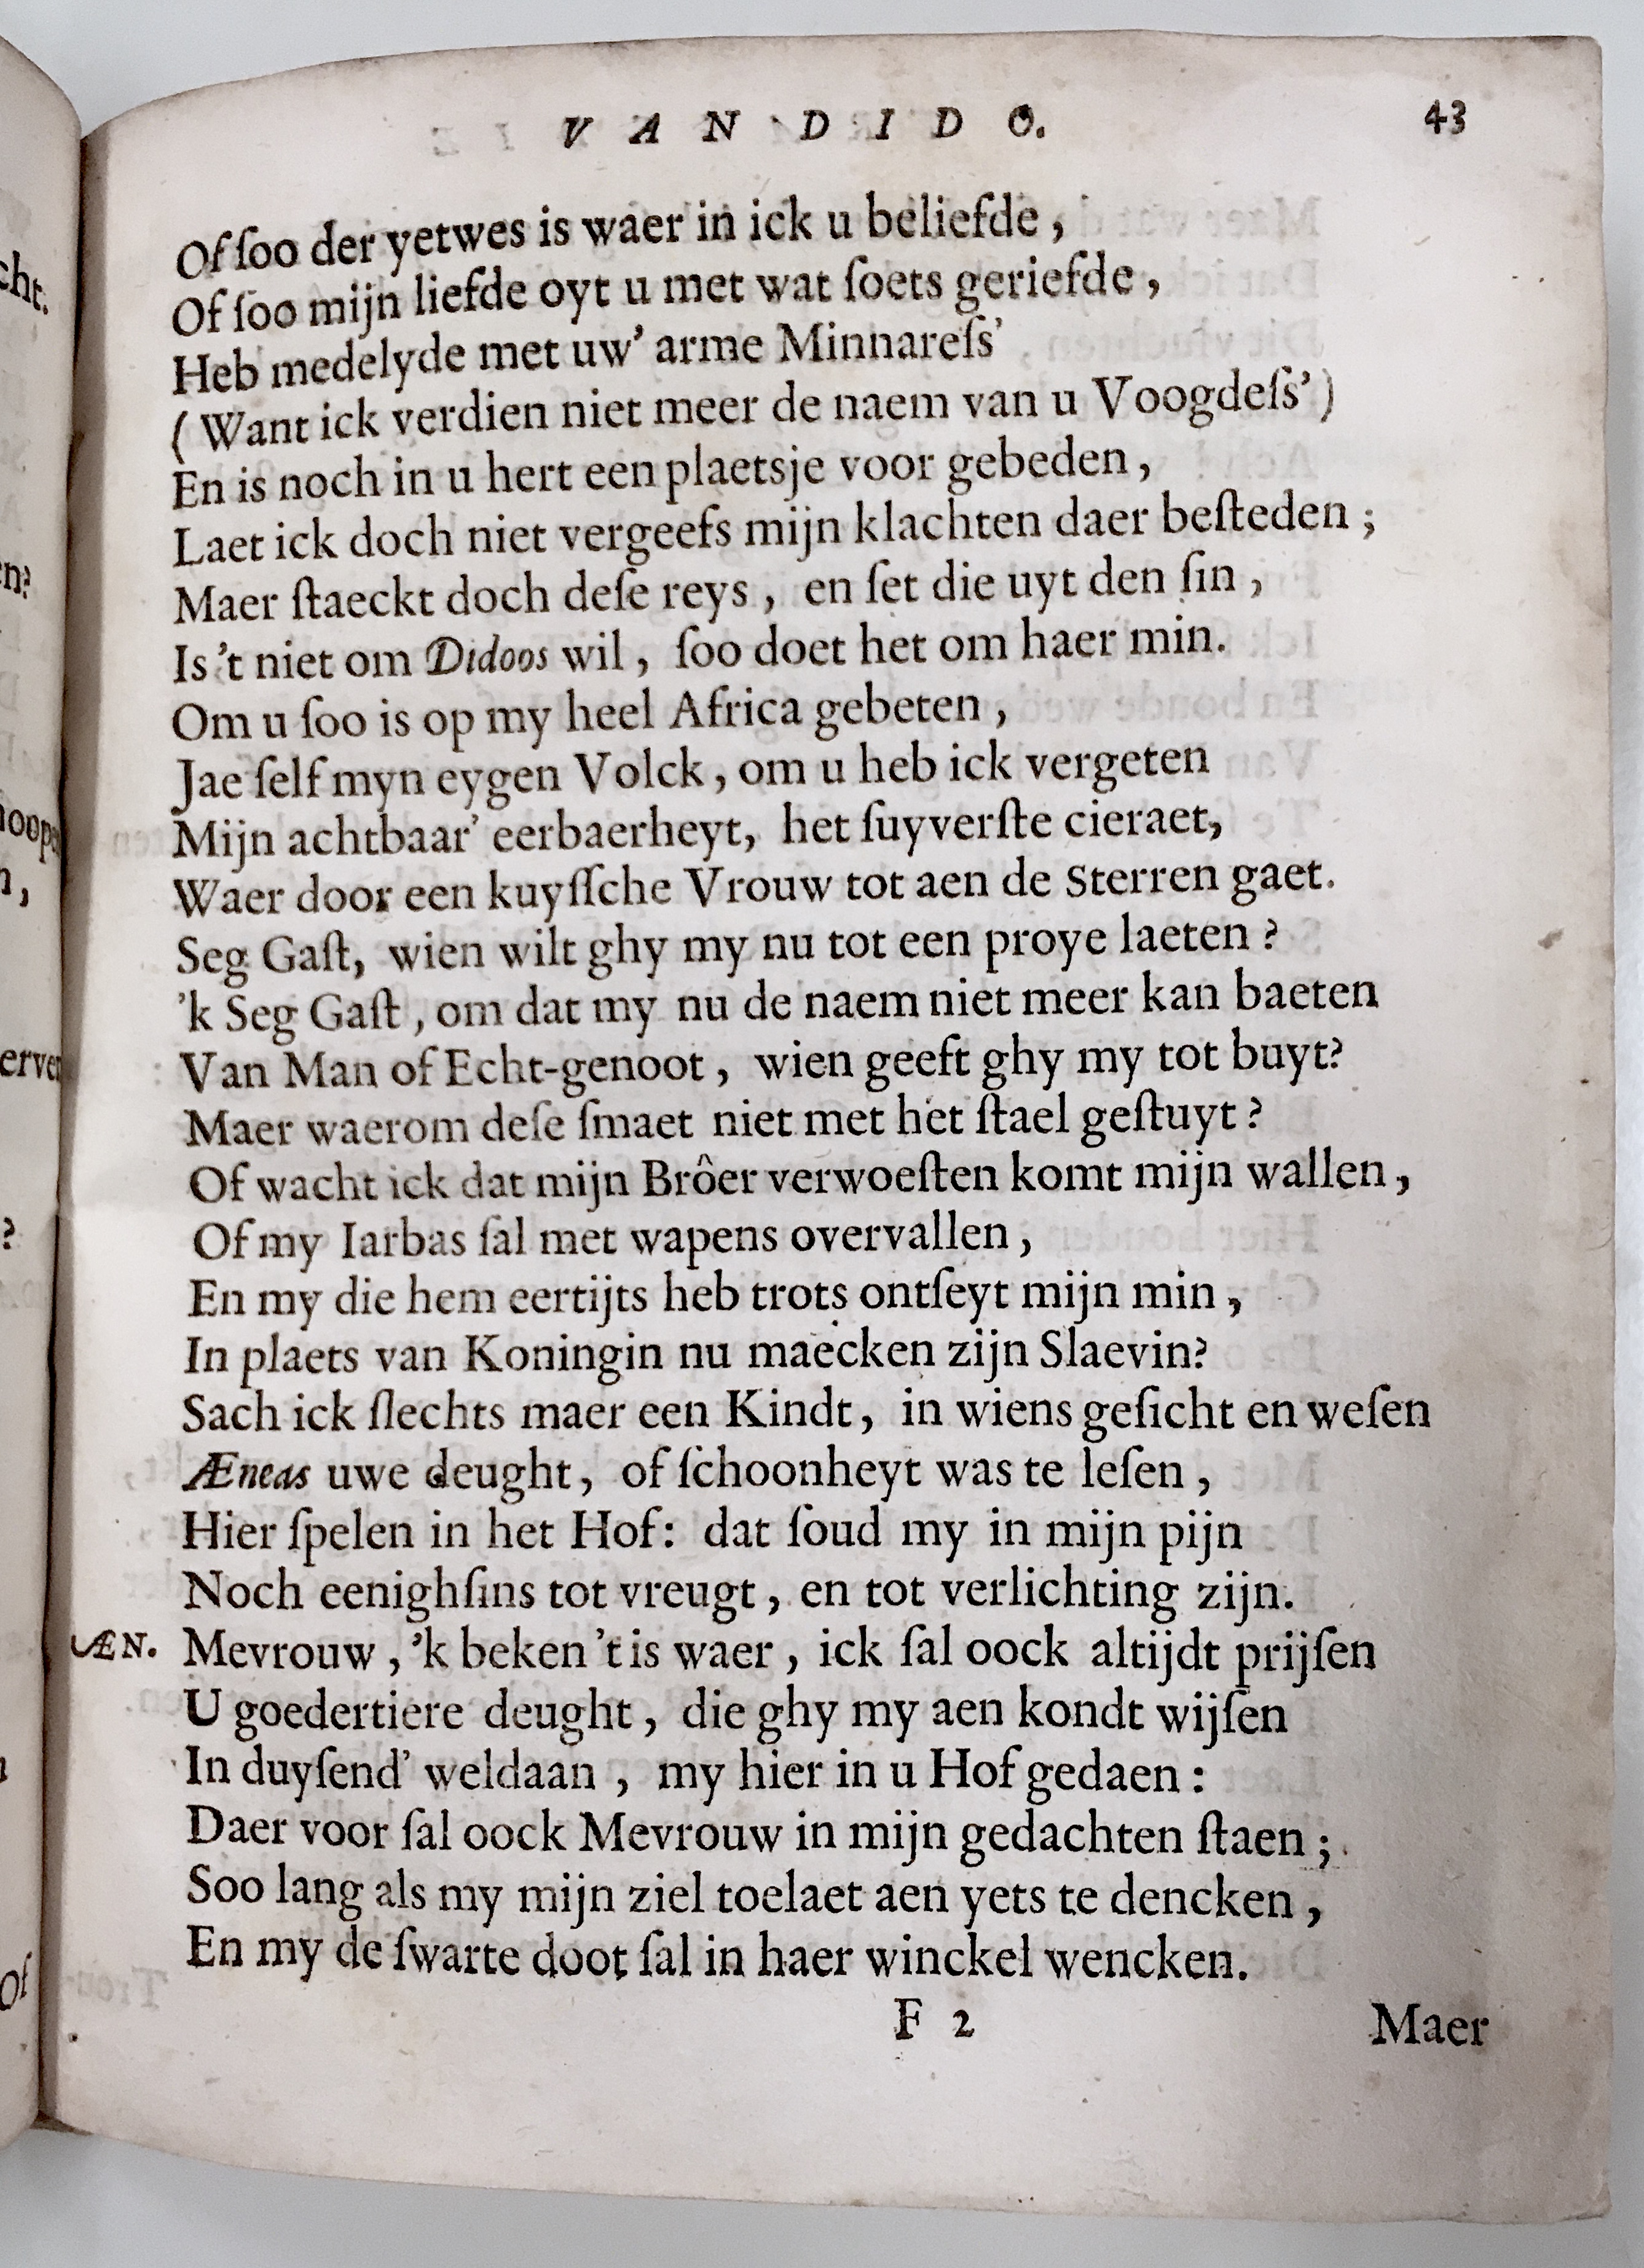 VAN DIDO. 43
Of ſoo der yetwes is waer in ick u beliefde,
Of ſoo mijn liefde oyt u met wat ſoets geriefde,
Heb medelyde met uw' arme Minnareſs'
(Want ick verdien niet meer de naem van u Voogdeſs')
En is noch in u hert een plaetsje voor gebeden,
Laet ick doch niet vergeefs mijn klachten daer beſteden;
Maer ſtaeckt doch deſe reys, en ſet die uyt den ſin,
Is 't niet om Didoos wil, ſoo doet het om haer min.
Om u ſoo is op my heel Africa gebeten,
Jae ſelf myn eygen Volck, om u heb ick vergeten
Mijn achtbaar' eerbaerheyt, het ſuyverſte cieraet,
Waer door een kuyſſche Vrouw tot aen de Sterren gaet.
Seg Gaſt, wien wilt ghy my nu tot een proye laeten?
'k Seg Gaſt, om dat my nu de naem niet meer kan baeten
Van Man of Echt-genoot, wien geeft ghy my tot buyt?
Maer waerom deſe ſmaet niet met het ſtael geſtuyt?
Of wacht ick dat mijn Brôer verwoeſten komt mijn wallen,
Of my Iarbas ſal met wapens overvallen,
En my die hem eertijts heb trots ontſeyt mijn min,
In plaets van Koningin nu maecken zijn Slaevin?
Sach ick ſlechts maer een Kindt, in wiens geſicht en weſen
Æneas uwe deught, of ſchoonheyt was te leſen,
Hier ſpelen in het Hof: dat ſoud my in mijn pijn
Noch eenighſins tot vreugt, en tot verlichting zijn.
ÆN. Mevrouw, 'k beken 't is waer, ick ſal oock altijdt prijſen
U goedertiere deught, die ghy my aen kondt wijſen
In duyſend' weldaan, my hier in u Hof gedaen:
Daer voor ſal oock Mevrouw in mijn gedachten ſtaen;
Soo lang als my mijn ziel toelaet aen yets te dencken,
En my de ſwarte doot ſal in haer winckel wencken.
F 2 Maer